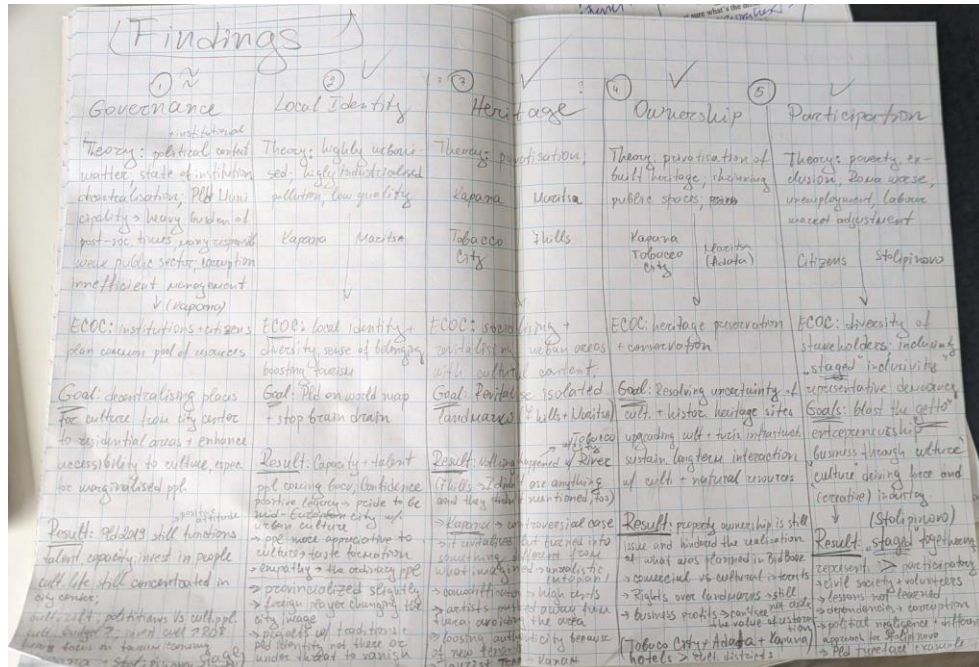 sure what's the di
(Findings)
① ≈
Governance
institutional
Theory: political context
matter, state of institution
decentralisation, Pld Muni
cipality → heavy burden of
post-soc. times, many
weak public sector, corruption
innefficient management
(Kapana)
ECOC: institutions + citizens
plan common pool of resources
Goal: decentralising places
for culture from city center
to residential areas + enhance
accessibility to culture, espec
for marginalised ppl.
positive attitude
Result: Pld2019 still functions
talent, capacity, invest in people
cult. life still concentrated in
city center;
politicians vs cult. ppl.
② ✓
Local Identity
Theory: highly urbani
sed - highly industrialised
pollution, low quality
Kapana Maritsa
ECOC: local identity +
diversity, sense of belonging
boosting tourism
Goal: Pld on world map
+ stop brain drain
Result: Capacity + talent
ppl coming back, confidence
positive legacy → pride to be
mid-European city w/
urban culture
→ ppl more appreciative to
culture → taste formation
→ empathy → the ordinary ppl
→ provincialized slightly
→ foreign player changing the
city image
→ projects w/ traditions
pld identity not there or
under threat to vanish
③ ✓
Heritage
Theory: privatisation;
Kapana Maritsa
Tobacco 7hills
City
ECOC: socialising +
revitalising urban areas
with cultural content
Goal: Revitalise isolated
landmarks (7hills + Maritsa)
Tobacco
River
Result: Nothing happened w/
(7hills → I didn't hear anything
and they didn't mentioned, too)
→ Kapana → controversial case
→ it but turned into
something different from
what imagined → unrealistic
(utopian)
→ high rents
→ artists pushed away from
the area
→ loosing authenticity because
of new tenants
④ ✓
Ownership
Theory: privatisation of
built heritage, shrinking
public spaces,
Kapana
Tobacco
City
Maritsa
(Adata)
ECOC: heritage preservation
+ conservation
Goal: Resolving uncertainty of
cult. + histor heritage sites
upgrading cult + turis infrastruct
sustain longterm interaction
w/ cult + natural resources
Result: property ownership is still
issue and hindred the realisation
of what was planned in Bidbook
→ comercial vs cultural interests
→ Rights over landmarks → still
→ business profits → can't see
the value of
(Tobacco City + Adata + Kapana)
hotels > cult districts
⑤ ✓
Participation
Theory: poverty, ex-
clusion, Roma worse,
unemployment, labour
market adjustment
Citizens Stolipinovo
ECOC: diversity of
stakeholders including
"staged" inclusivity
representive democracy
Goals: blast the getto"
entrepreneurship"
"business through culture"
"culture" driving force and
(creative) industry
(Stolipinovo)
Result: "staged" togethering
represent. > participatory
→ civil society + volunteers
→ lessons not learned
→ dependancies + corruption
→ political negligence + different
approach for Stolipinovo
→ Pld typeface example